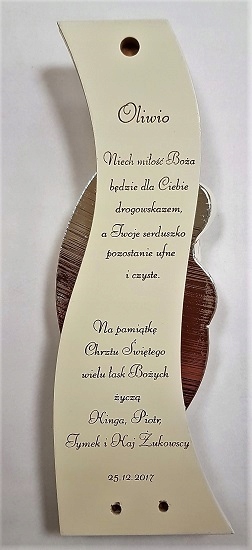 Oliwio
Niech miłość Boża
będzie dla Ciebie
drogowskazem,
a Twoje serduszko
pozostanie ufne
i czyste.
Na pamiątkę
Chrztu Świętego
wielu łask Bożych
życzą
Kinga, Piotr,
Tymek i Kaj Żukowscy
25.12.2017